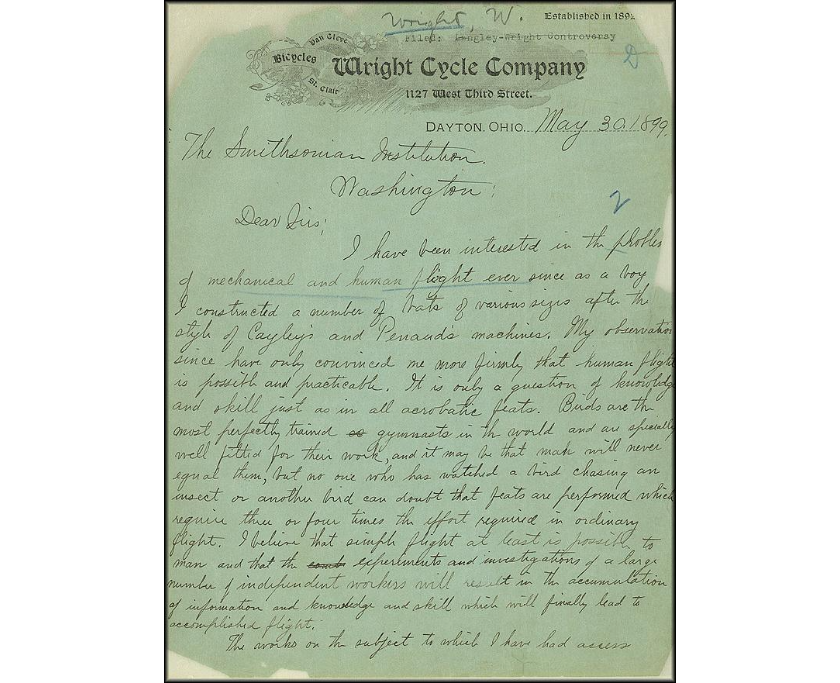 Wright, W.
Established in 1892.
Filed: Langley-Wright Controversy
Van Cleve
Bicycles
St. Clair
Wright Cycle Company
1127 West Third Street.
DAYTON, OHIO. May 30, 1899.
The Smithsonian Institution,
Washington;
2
Dear Sirs;
I have been interested in the problem
of mechanical and human flight ever since as a boy
I constructed a number of bats of various sizes after the
style of Cayley's and Penaud's machines. My observations
since have only convinced me more firmly that human flight
is possible and practicable. It is only a question of knowledge
and skill just as in all acrobatic feats. Birds are the
most perfectly trained gymnasts in the world and are specially
well fitted for their work, and it may be that man will never
equal them, but no one who has watched a bird chasing an
insect or another bird can doubt that feats are performed which
require three or four times the effort required in ordinary
flight. I believe that simple flight at least is possible to
man and that the experiments and investigations of a large
number of independent workers will result in the accumulation
of information and knowledge and skill which will finally lead to
accomplished flight.
The works on the subject to which I have had access